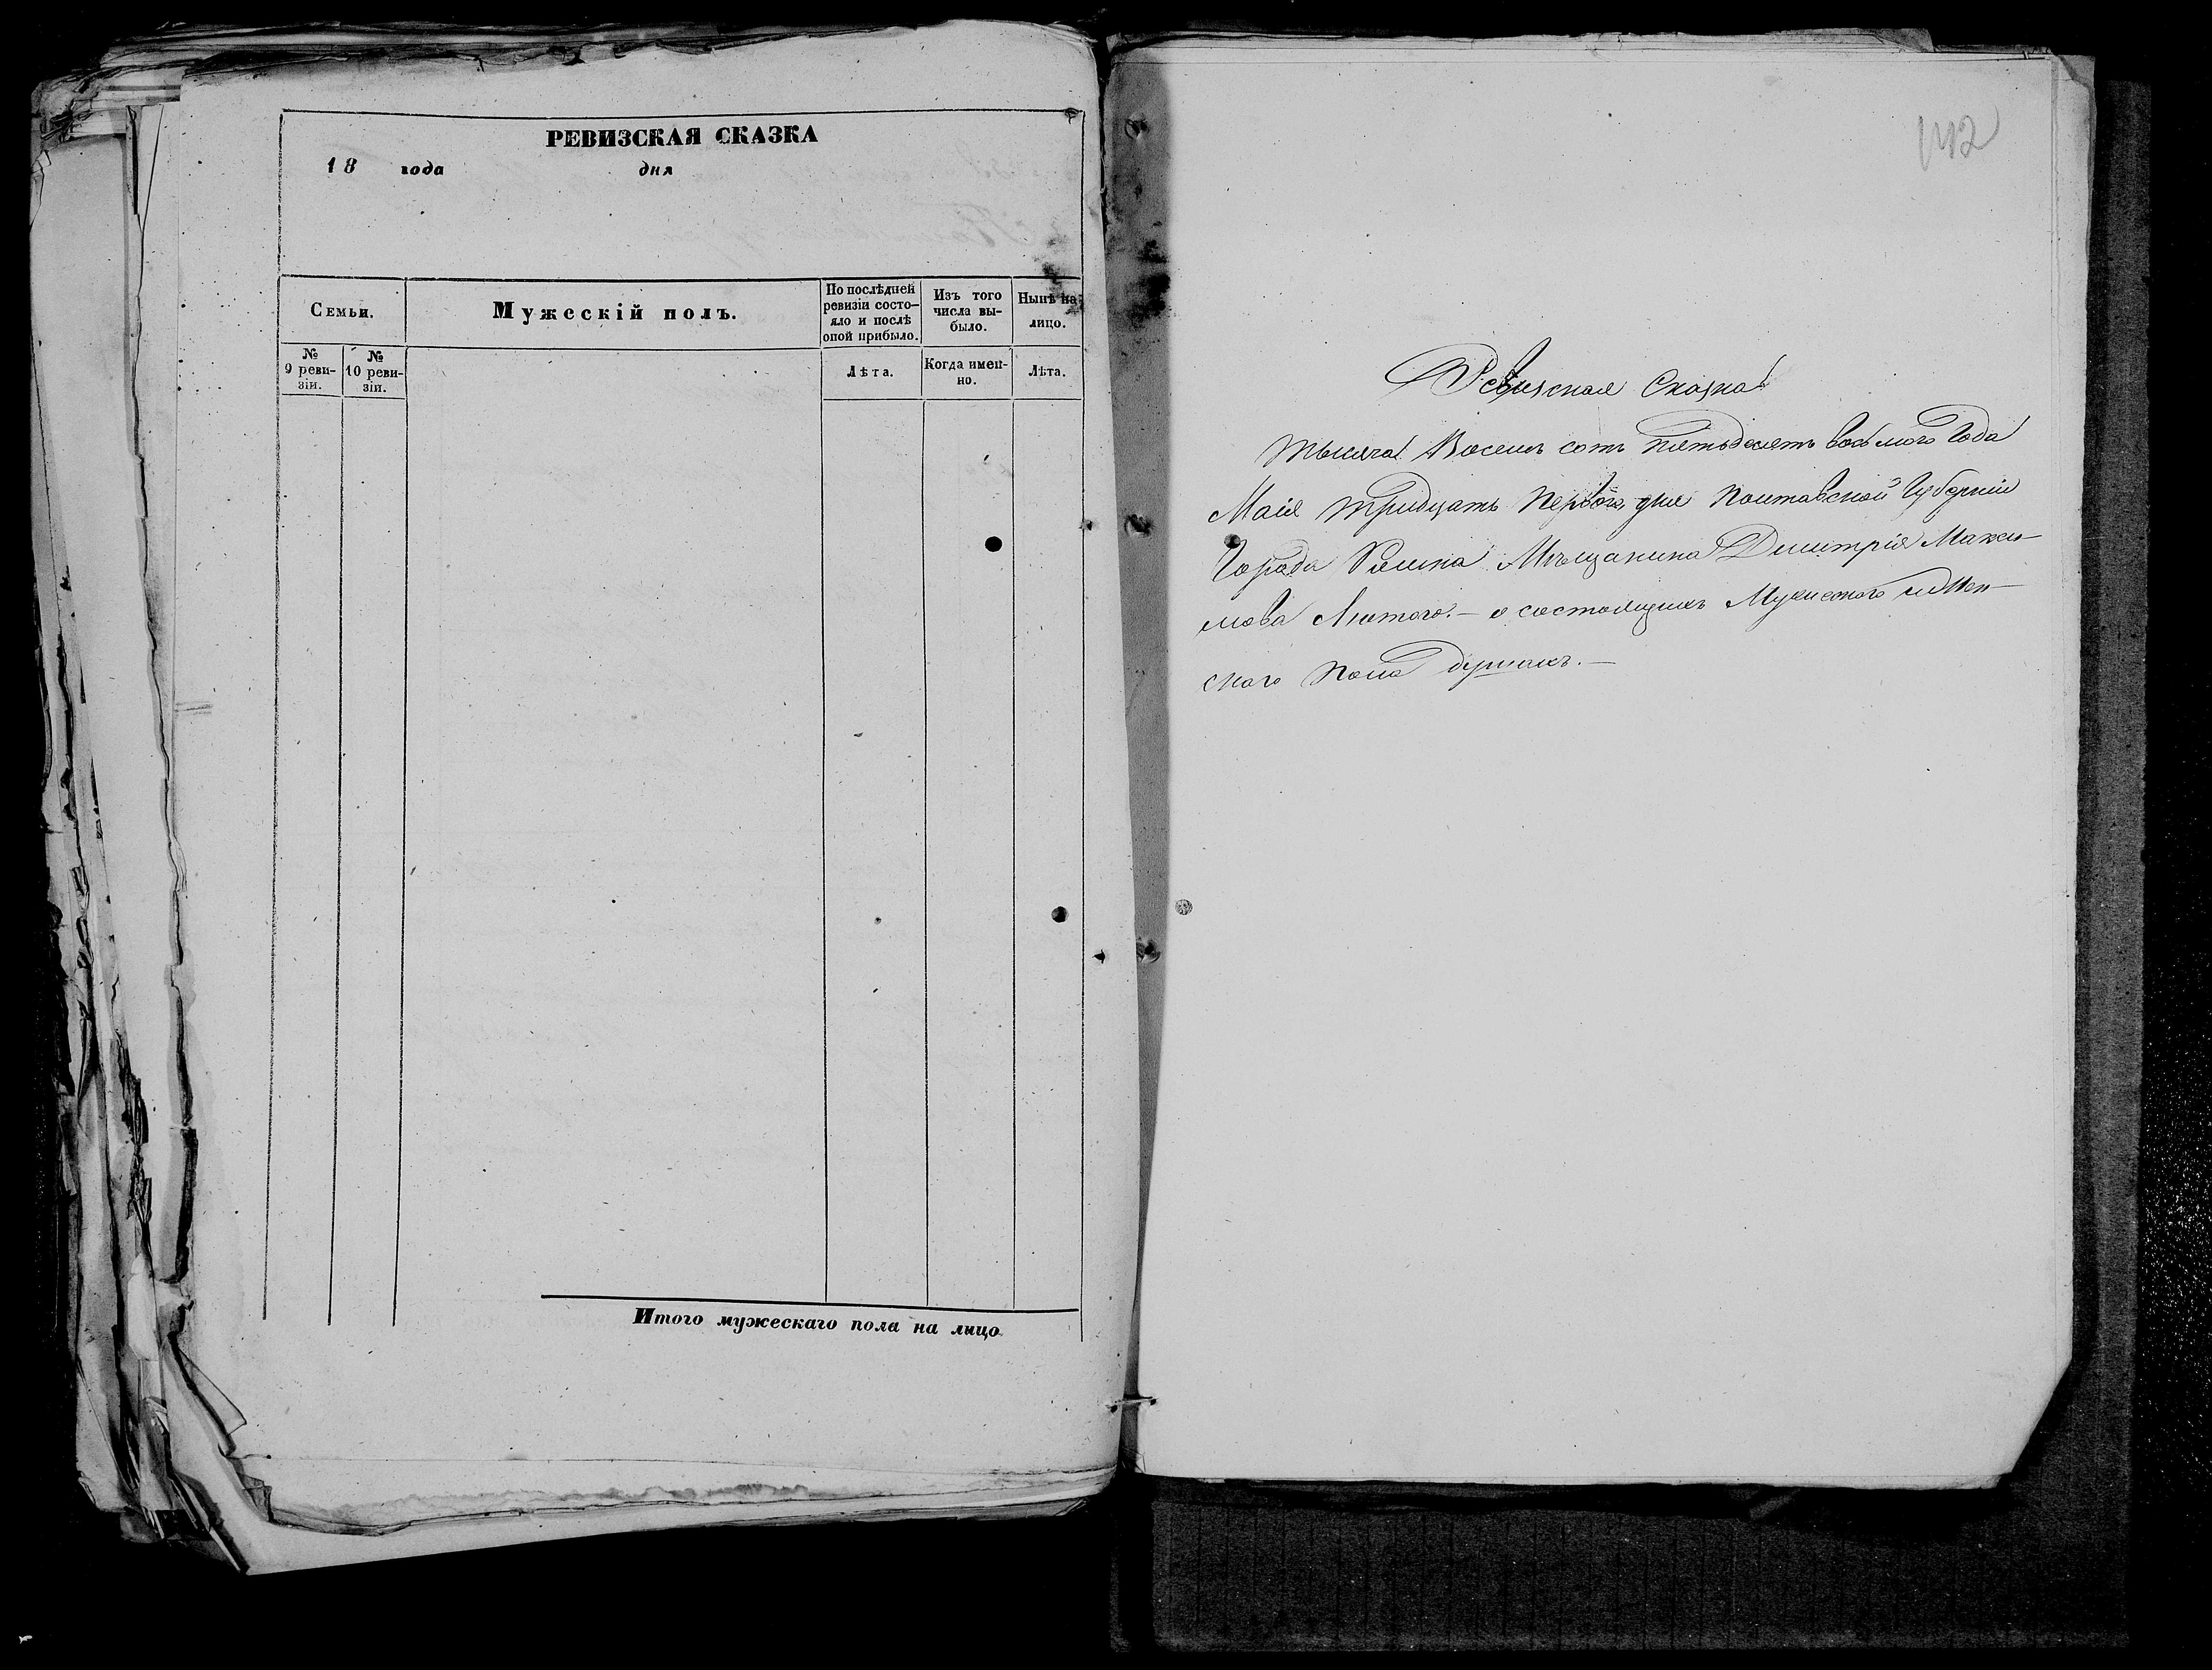 РЕВИЗСКАЯ СКАЗКА
18 года дня
Семьи.
Мужескій полъ.
По послѣдней
ревизіи состо-
яло и послѣ
оной прибыло.
Изъ того
числа вы-
было.
Нынѣ на
лицо.
№
9 реви-
зіи.
№
10 реви-
зіи.
Лѣта.
Когда имен-
но.
Лѣта.
Итого мужескаго пола на лицо
142
Ревизская Сказка
тысяча Восемь сотъ пятьдесятъ восьмого Года
Маія тридцать первого дня Полтавской Губерніи
Города Ромна Мѣщанина Димитрія Макси-
мова Лютого.— о состоящихъ Мужеского и Жен-
ского пола душахъ.—